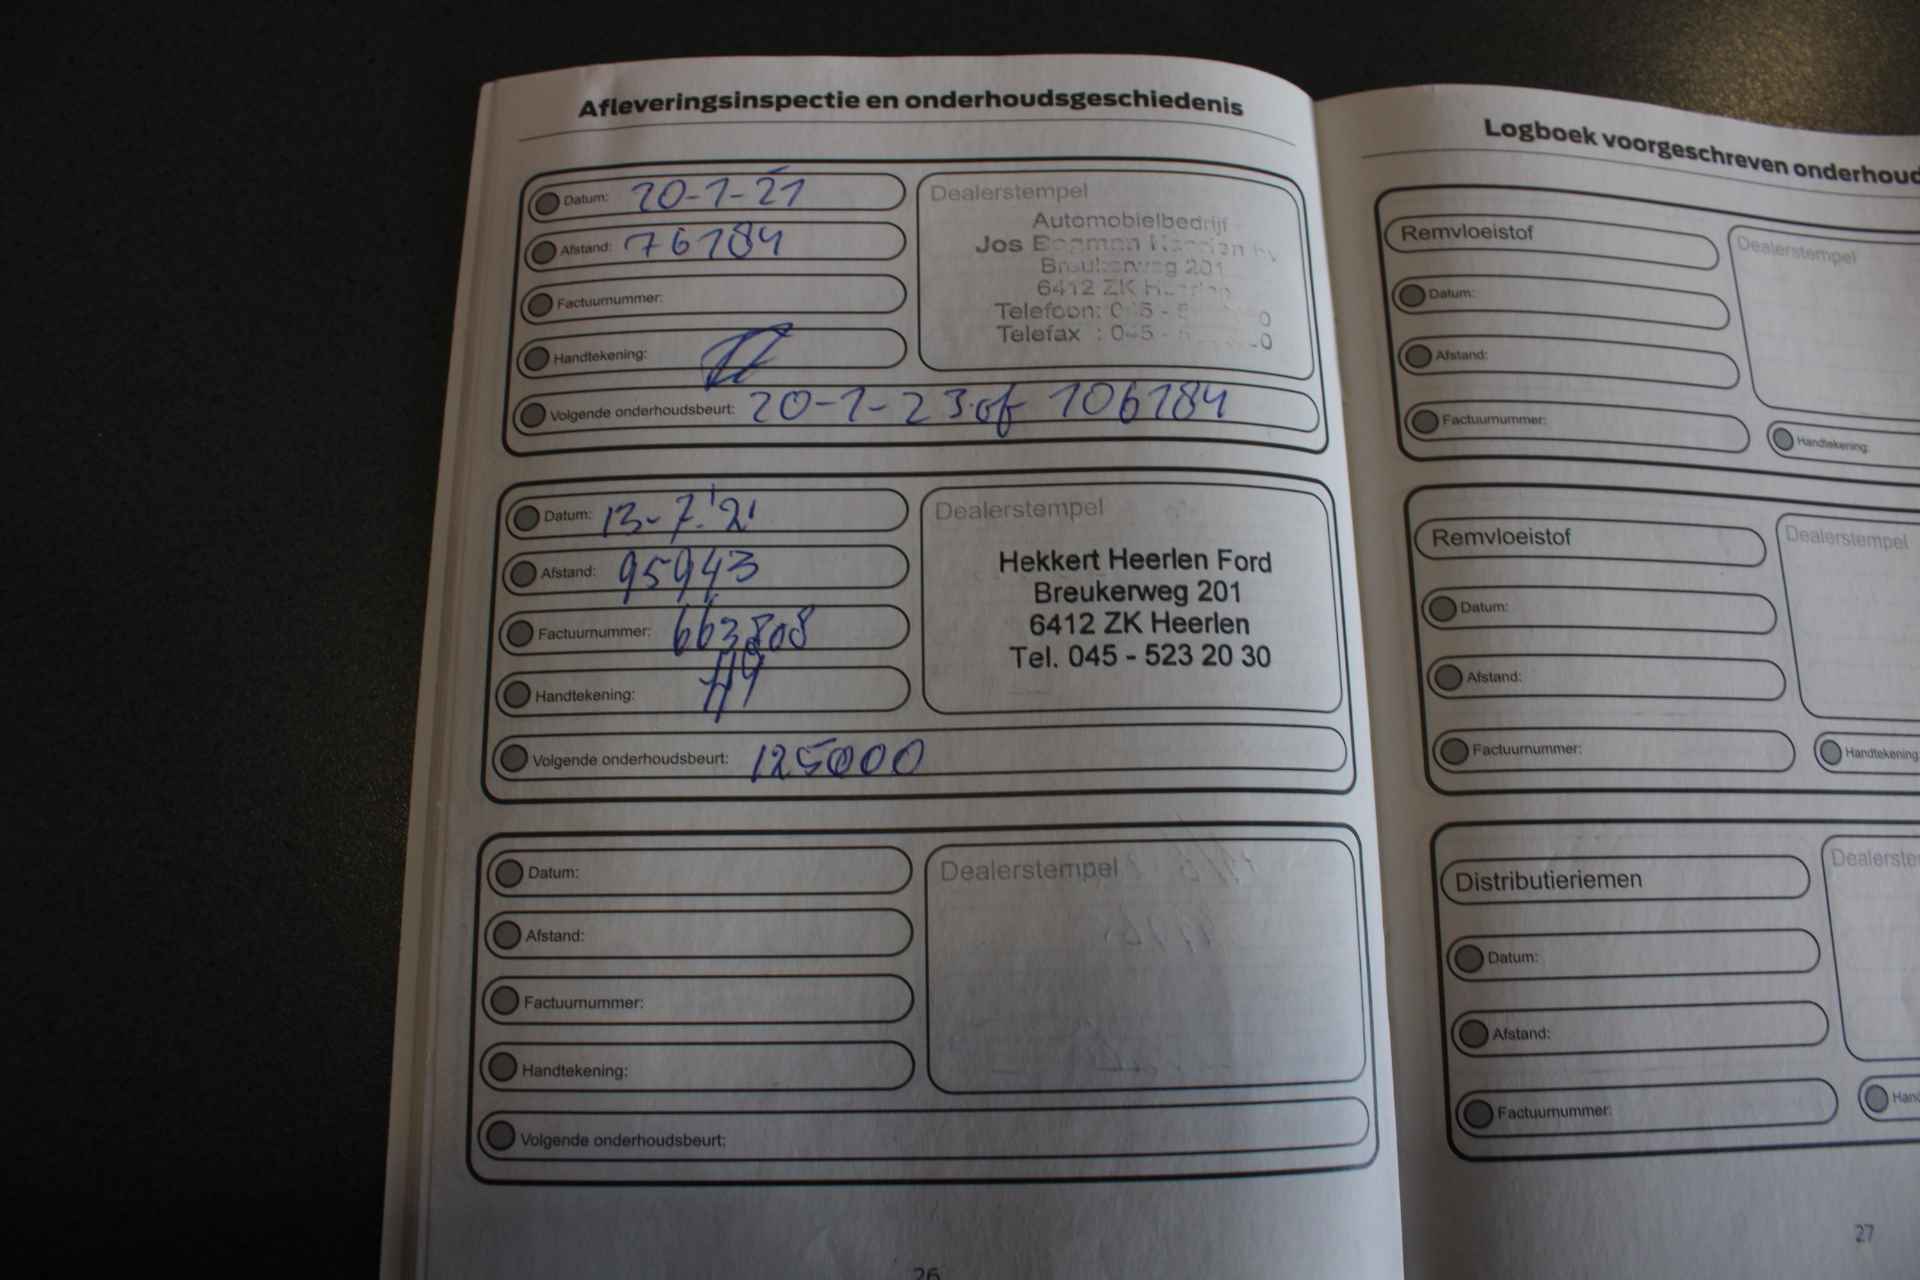 Afleveringsinspectie en onderhoudsgeschiedenis
Datum: 20-1-21
Afstand: 76184
Factuurnummer:
Handtekening:
Volgende onderhoudsbeurt: 20-1-23 of 106184
Dealerstempel
Automobielbedrijf
Jos
Breukerweg 201
6412 ZK Heerlen
Telefoon: 045 -
Telefax : 045 -
Datum: 13-7-'21
Afstand: 95943
Factuurnummer: 663808
Handtekening:
Volgende onderhoudsbeurt: 125000
Dealerstempel
Hekkert Heerlen Ford
Breukerweg 201
6412 ZK Heerlen
Tel. 045 - 523 20 30
Datum:
Afstand:
Factuurnummer:
Handtekening:
Volgende onderhoudsbeurt:
Dealerstempel
26
Logboek voorgeschreven onderhoud
Remvloeistof
Datum:
Afstand:
Factuurnummer:
Dealerstempel
Handtekening:
Remvloeistof
Datum:
Afstand:
Factuurnummer:
Dealerstempel
Handtekening
Distributieriemen
Datum:
Afstand:
Factuurnummer:
Dealerste
Hand
27